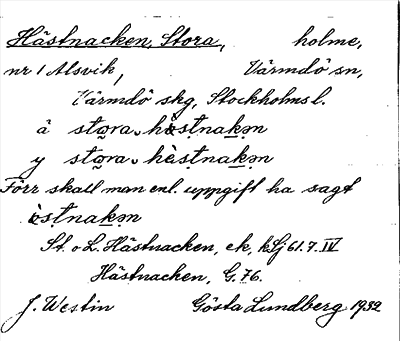 Hästnacken, Stora, holme,
nr 1 Alsvik, Värmdö sn,
Värmdö skg, Stockholms l.
å sto̰ra hèṣṭnak̲ən
y sto̰ra hèṣṭnak̲ən
Förr skall man enl. uppgift ha sagt
èṣṭnak̲ən
St. o L. Hästnacken, ek, kLj 61.7. IV
Hästnacken, G. 76.
J. Westin Gösta Lundberg 1932